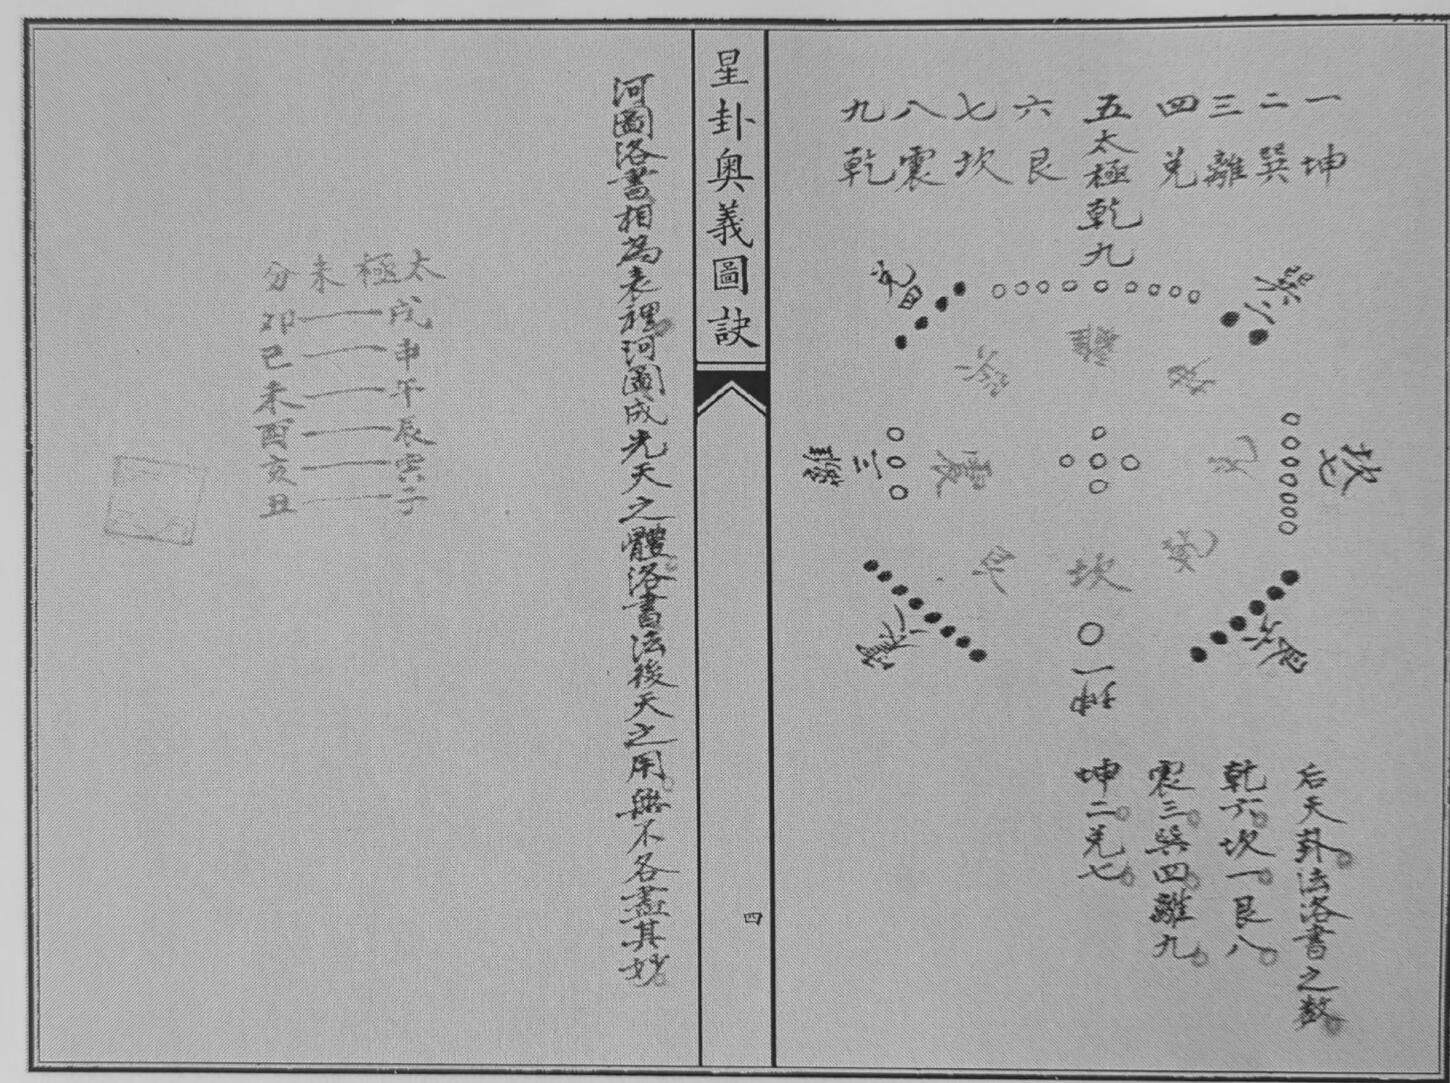 一坤
二巽
三離
四兌
五太極乾九
六艮
七坎
八震
九乾
巽二
坎七
艮六
一坤
震八
離三
兌四
離
坤
兌
乾
坎
艮
震
巽
后天卦法洛書之数
乾六坎一艮八
震三巽四離九
坤二兌七
星卦奧義圖訣
四
河圖洛書相為表裡河圖成先天之體洛書法後天之用無不各盡其妙
太極未分
戌 卯
申 巳
午 未
辰 酉
寅 亥
子 丑